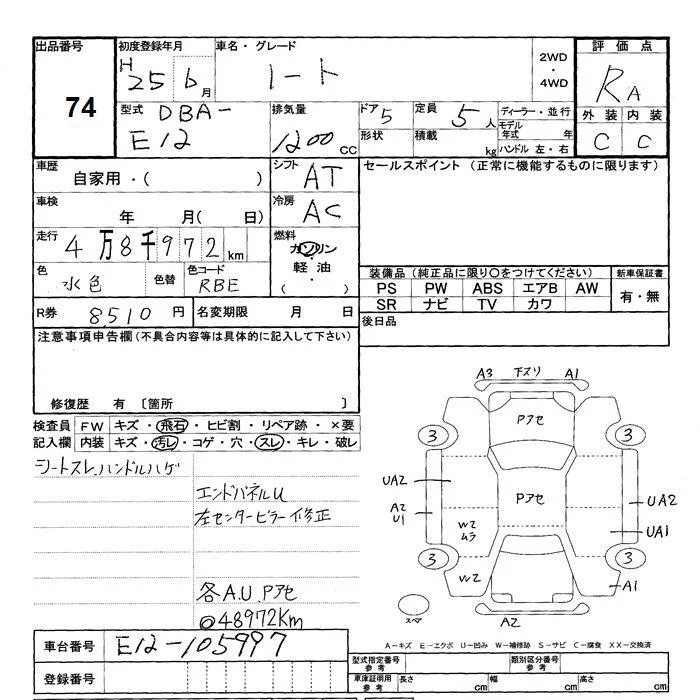 出品番号 初度登録年月 車名・グレード 2WD・4WD 評価点
74 H 25 6月 ノート RA
型式 DBA- 排気量 ドア 5 定員 5人 ディーラー・並行 外装 内装
E12 1200cc 形状 積載 kg モデル年式 年 ハンドル 左・右 C C
車歴 自家用・( ) シフト AT セールスポイント (正常に機能するものに限ります)
車検 年 月( 日) 冷房 AC
走行 4万8千972km 燃料 ガソリン・軽油・( )
色 水色 色替 色コード RBE 装備品 (純正品に限り〇をつけてください) 新車保証書
PS PW ABS エアB AW 有・無
SR ナビ TV カワ
R券 8,510円 名変期限 月 日 後日品
注意事項申告欄 (不具合内容等は具体的に記入して下さい)
修復歴 有 〔箇所 〕
検査員 FW キズ・飛石・ヒビ割・リペア跡・×要
記入欄 内装 キズ・汚レ・コゲ・穴・スレ・キレ・破レ
シートスレ、ハンドルハゲ
エンドパネルU
左センターピラー修正
各A.U Pアセ
◎48972Km
A3 下スリ A1
Pアセ
3 3
UA2 Pアセ UA2
A2 U1 W2 ムラ UA1
3 W2 3
A1
スペア A2
A-キズ E-エクボ U-凹み W-補修跡 S-サビ C-腐食 XX-交換済
車台番号 E12-105997
登録番号
型式指定番号 参考 類別区分番号 参考
車庫証明用 参考 長さ cm 幅 cm 高さ cm